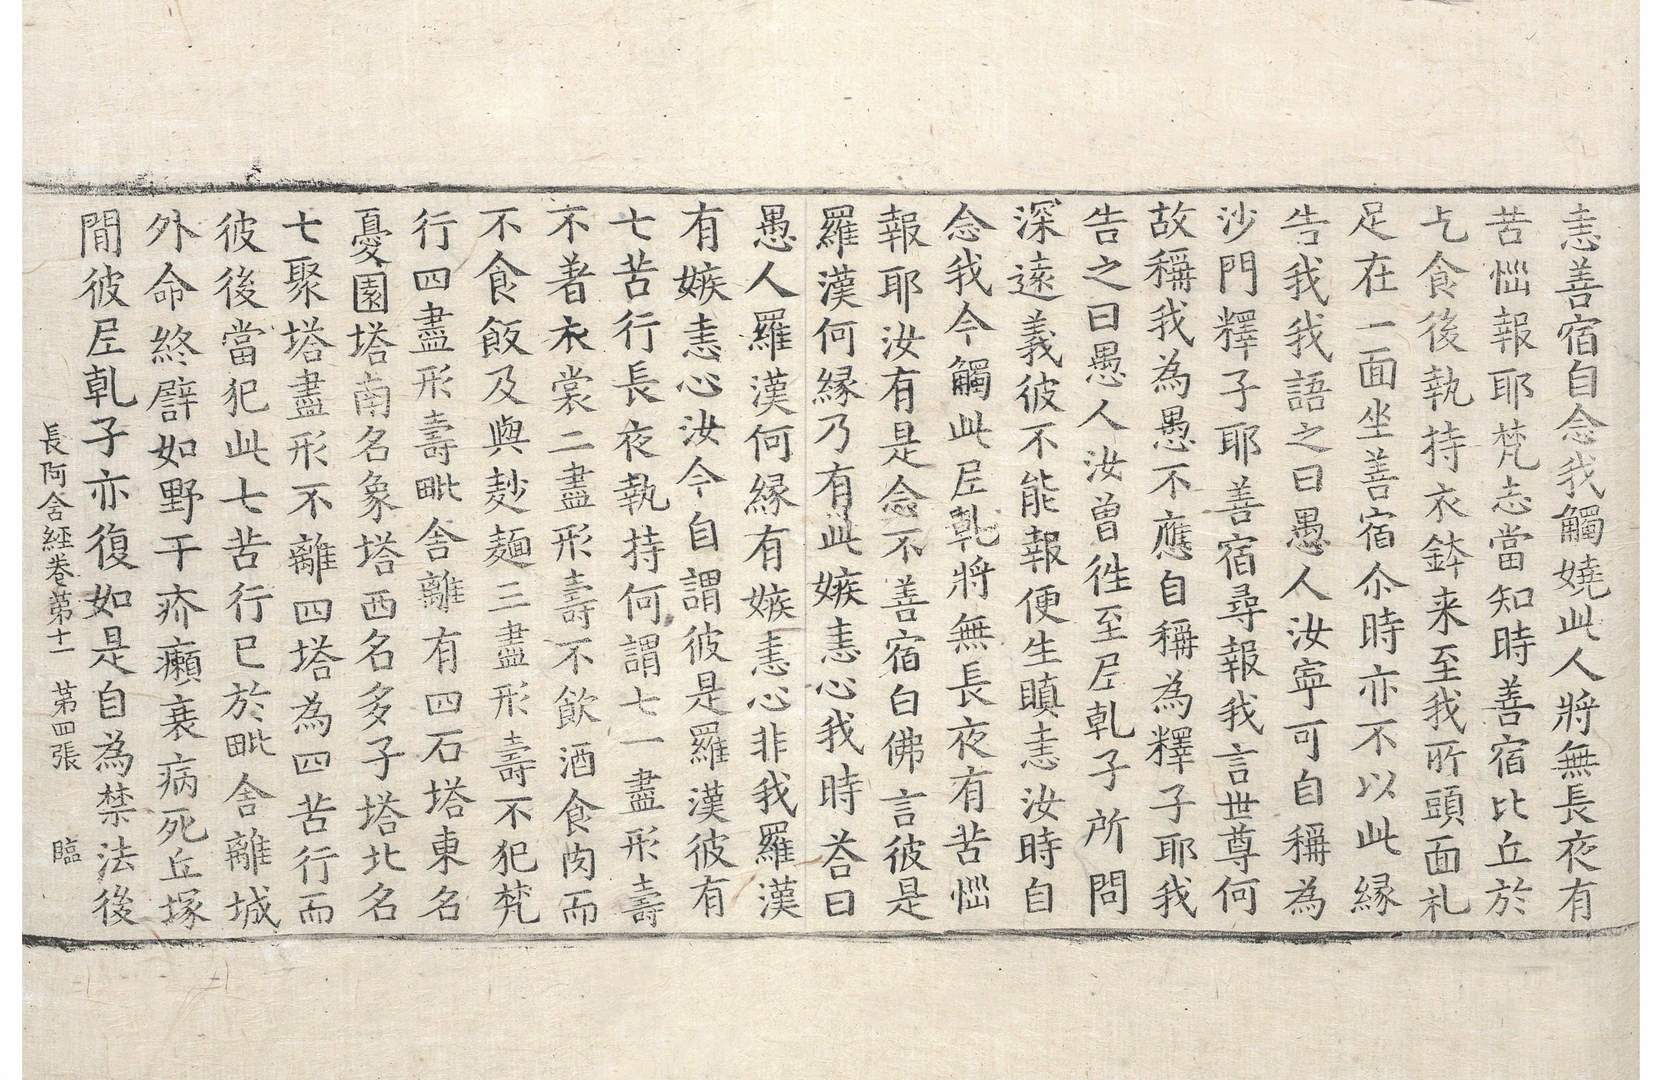 恚善宿自念我觸嬈此人將無長夜有
苦惱報耶梵志當知時善宿比丘於
乞食後執持衣鉢来至我所頭面礼
足在一面坐善宿尒時亦不以此緣
告我我語之曰愚人汝寧可自稱為
沙門釋子耶善宿尋報我言世尊何
故稱我為愚不應自稱為釋子耶我
告之曰愚人汝曾徃至尼乹子所問
深遠義彼不能報便生瞋恚汝時自
念我今觸此尼乹將無長夜有苦惱
報耶汝有是念不善宿白佛言彼是
羅漢何緣乃有此嫉恚心我時荅曰
愚人羅漢何緣有嫉恚心非我羅漢
有嫉恚心汝今自謂彼是羅漢彼有
七苦行長夜執持何謂七一盡形壽
不著衣裳二盡形壽不飲酒食肉而
不食飯及與麨麵三盡形壽不犯梵
行四盡形壽毗舍離有四石塔東名
憂園塔南名象塔西名多子塔北名
七聚塔盡形不離四塔為四苦行而
彼後當犯此七苦行已於毗舍離城
外命終譬如野干疥癩衰病死丘塚
間彼尼乹子亦復如是自為禁法後
長阿含經卷第十一 第四張 臨